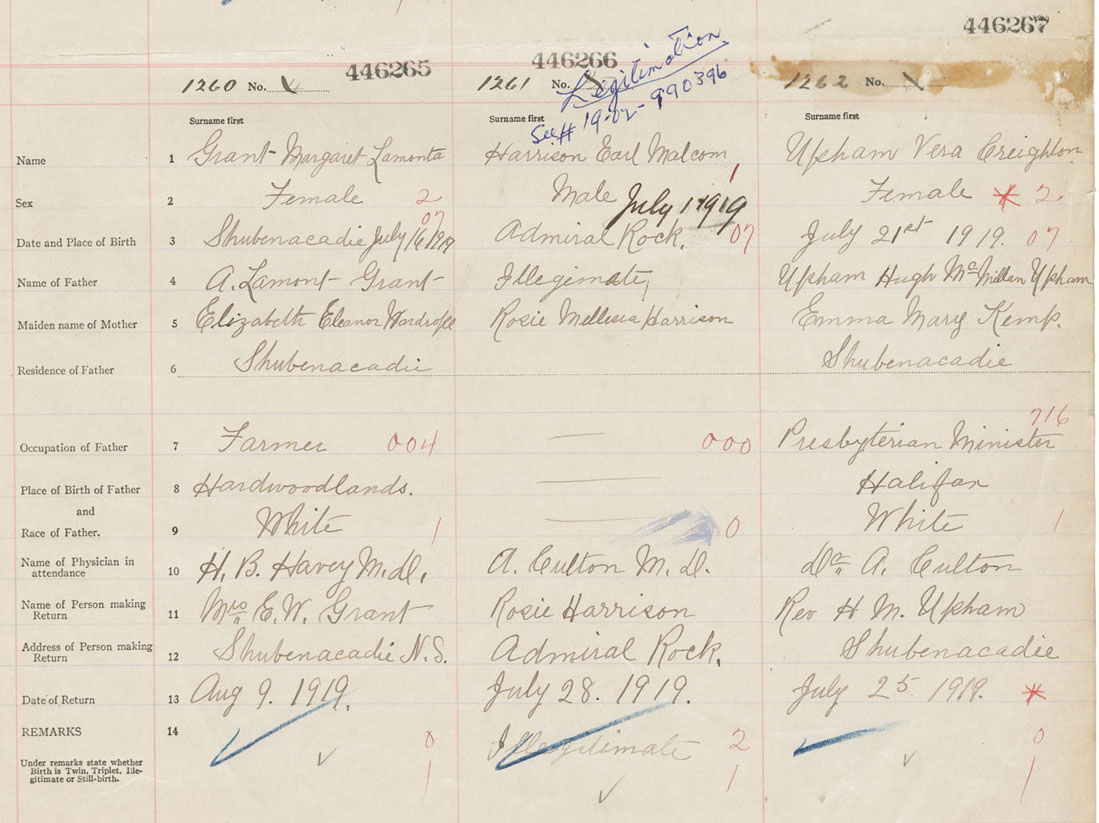 446267
446265
446266
Legitimation
See # 19-02-990396
1260 No.
1261 No.
1262 No.
Surname first
Surname first
Surname first
Name 1 Grant Margaret Lamonta Harrison Earl Malcom Upham Vera Creighton
Sex 2 Female 2 Male 1 Female 2
Date and Place of Birth 3 Shubenacadie July 16 1919 07 Admiral Rock. July 1 1919 07 July 21st 1919. 07
Name of Father 4 A. Lamont Grant Illegimate, Upham Hugh McMillan Upham
Maiden name of Mother 5 Elizabeth Eleanor Wardrope Rosie Mellissa Harrison Emma Mary Kemp.
Residence of Father 6 Shubenacadie Shubenacadie
716
Occupation of Father 7 Farmer 004 000 Presbyterian Minister
Place of Birth of Father 8 Hardwoodlands. Halifax
and
Race of Father. 9 White 1 0 White 1
Name of Physician in
attendance 10 H. B. Havey M.d. A. Culton M.d. Dr. A. Culton
Name of Person making
Return 11 Mrs E. W. Grant Rosie Harrison Rev H M. Upham
Address of Person making
Return 12 Shubenacadie N.S. Admiral Rock. Shubenacadie
Date of Return 13 Aug 9. 1919. July 28. 1919. July 25 1919.
REMARKS 14 0 Illegitimate 2 0
Under remarks state whether
Birth is Twin, Triplet, Ille-
gitimate or Still-birth.
1 1 1